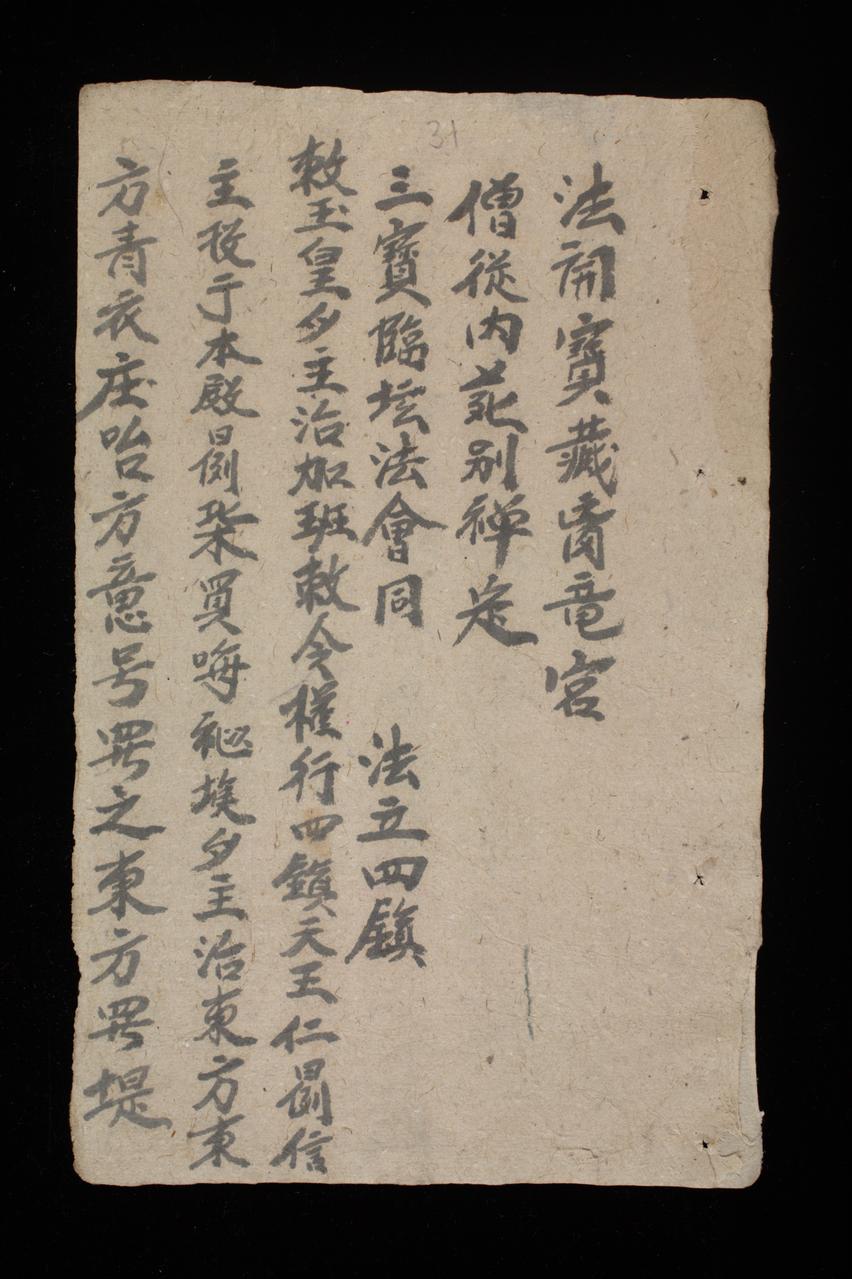 31
法開寶藏㐭竜宮
僧從内苑別禅定
三寶臨坛法會同 法立四鎮
敕玉皇夕主治加班敕令権行四鎮天王仁㝵信
主役于本殿買呣祕埃夕主治東方東
方青衣座咍方意号𦊛之東方𦊛堤